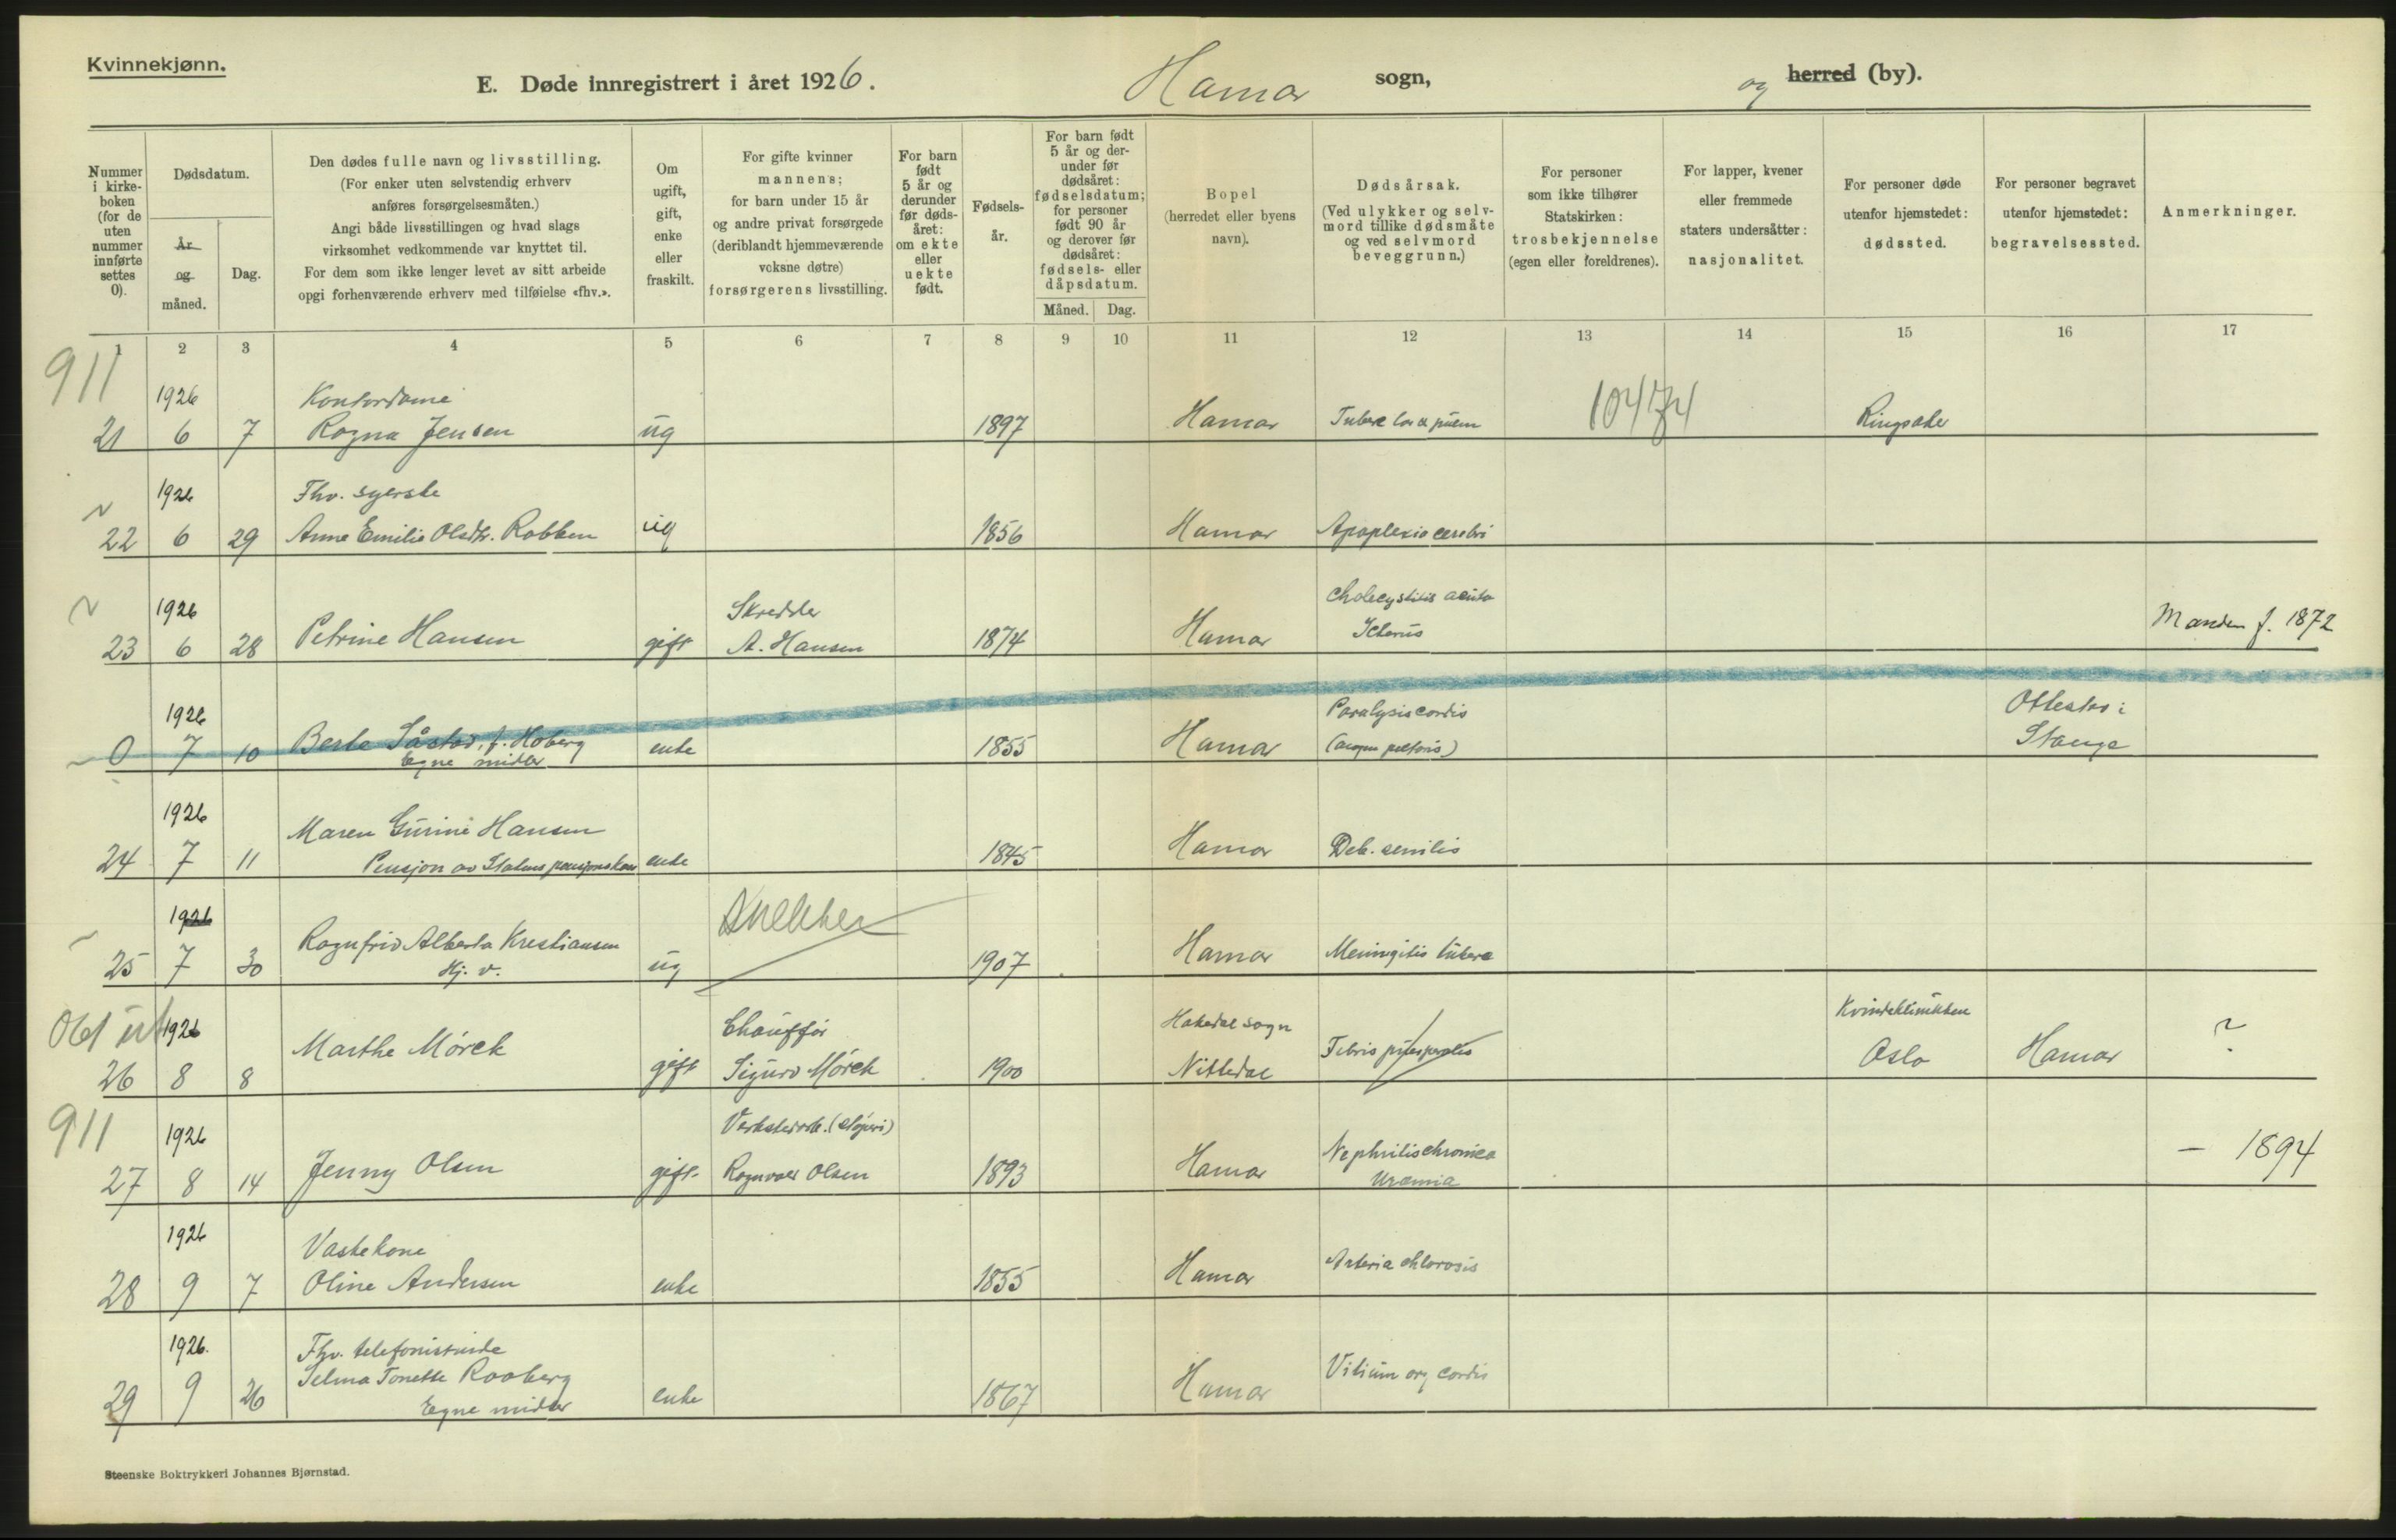 Kvinnekjønn.
E. Døde innregistrert i året 1926. Hamar sogn, og herred (by).
Nummer i kirkeboken (for de uten nummer innførte settes 0).
Dødsdatum.
År og måned.
Dag.
Den dødes fulle navn og livsstilling.
(For enker uten selvstendig erhverv
anføres forsørgelsesmåten.)
Angi både livsstillingen og hvad slags
virksomhet vedkommende var knyttet til.
For dem som ikke lenger levet av sitt arbeide
opgi forhenværende erhverv med tilføielse «fhv.».
Om ugift, gift, enke eller fraskilt.
For gifte kvinner
mannens;
for barn under 15 år
og andre privat forsørgede
(deriblandt hjemmeværende
voksne døtre)
forsørgerens livsstilling.
For barn født 5 år og derunder før dødsåret: om ekte eller uekte født.
Fødselsår.
For barn født 5 år og derunder før dødsåret: fødselsdatum; for personer født 90 år og derover før dødsåret: fødsels- eller dåpsdatum.
Måned. Dag.
Bopel
(herredet eller byens
navn).
Dødsårsak.
(Ved ulykker og selvmord tillike dødsmåte og ved selvmord beveggrunn.)
For personer
som ikke tilhører
Statskirken:
trosbekjennelse
(egen eller foreldrenes).
For lapper, kvener
eller fremmede
staters undersåtter:
nasjonalitet.
For personer døde
utenfor hjemstedet:
dødssted.
For personer begravet
utenfor hjemstedet:
begravelsessted.
Anmerkninger.
1 2 3 4 5 6 7 8 9 10 11 12 13 14 15 16 17
911
1926 Kontordame
21 6 7 Ragna Jensen ug 1897 Hamar Ringsaker
1926 Fhv. syerske
22 6 29 Anna Emilie Olsdtr. Robben ug 1856 Hamar Apoplexia cerebri
1926 Skredder Cholecystitis acuta
23 6 28 Petrine Hansen gift A. Hansen 1874 Hamar Icterus Manden f. 1872
1926 Paralysis cordis Ottestad i
0 7 10 Berte Såstad, f. Hoberg enke 1855 Hamar (angina pectoris) Stange
Egne midler
1926 Maren Gurine Hansen
24 7 11 Pensjon av Statens pensjonskasse enke 1845 Hamar Deb. senilis
1926 Snekker
25 7 30 Ragnfrid Alberta Kristiansen ug 1907 Hamar Meningitis tuberc
Hj. v.
1926 Chauffør Hakedal sogn Kvindeklinikken ?
26 8 8 Marthe Mørck gift Sigurd Mørck 1900 Nittedal Febris puerperalis Oslo Hamar
911
1926 Verkstedarb. (støperi) Nephritis chronica
27 8 14 Jenny Olsen gift Ragnvald Olsen 1893 Hamar Uræmia — 1894
1926 Vaskekone
28 9 7 Oline Andersen enke 1855 Hamar
1926. Fhv. telefonistinde
29 9 26 Selma Tonette Raaberg enke 1867 Hamar Vitium org cordis
Egne midler
Steenske Boktrykkeri Johannes Bjørnstad.